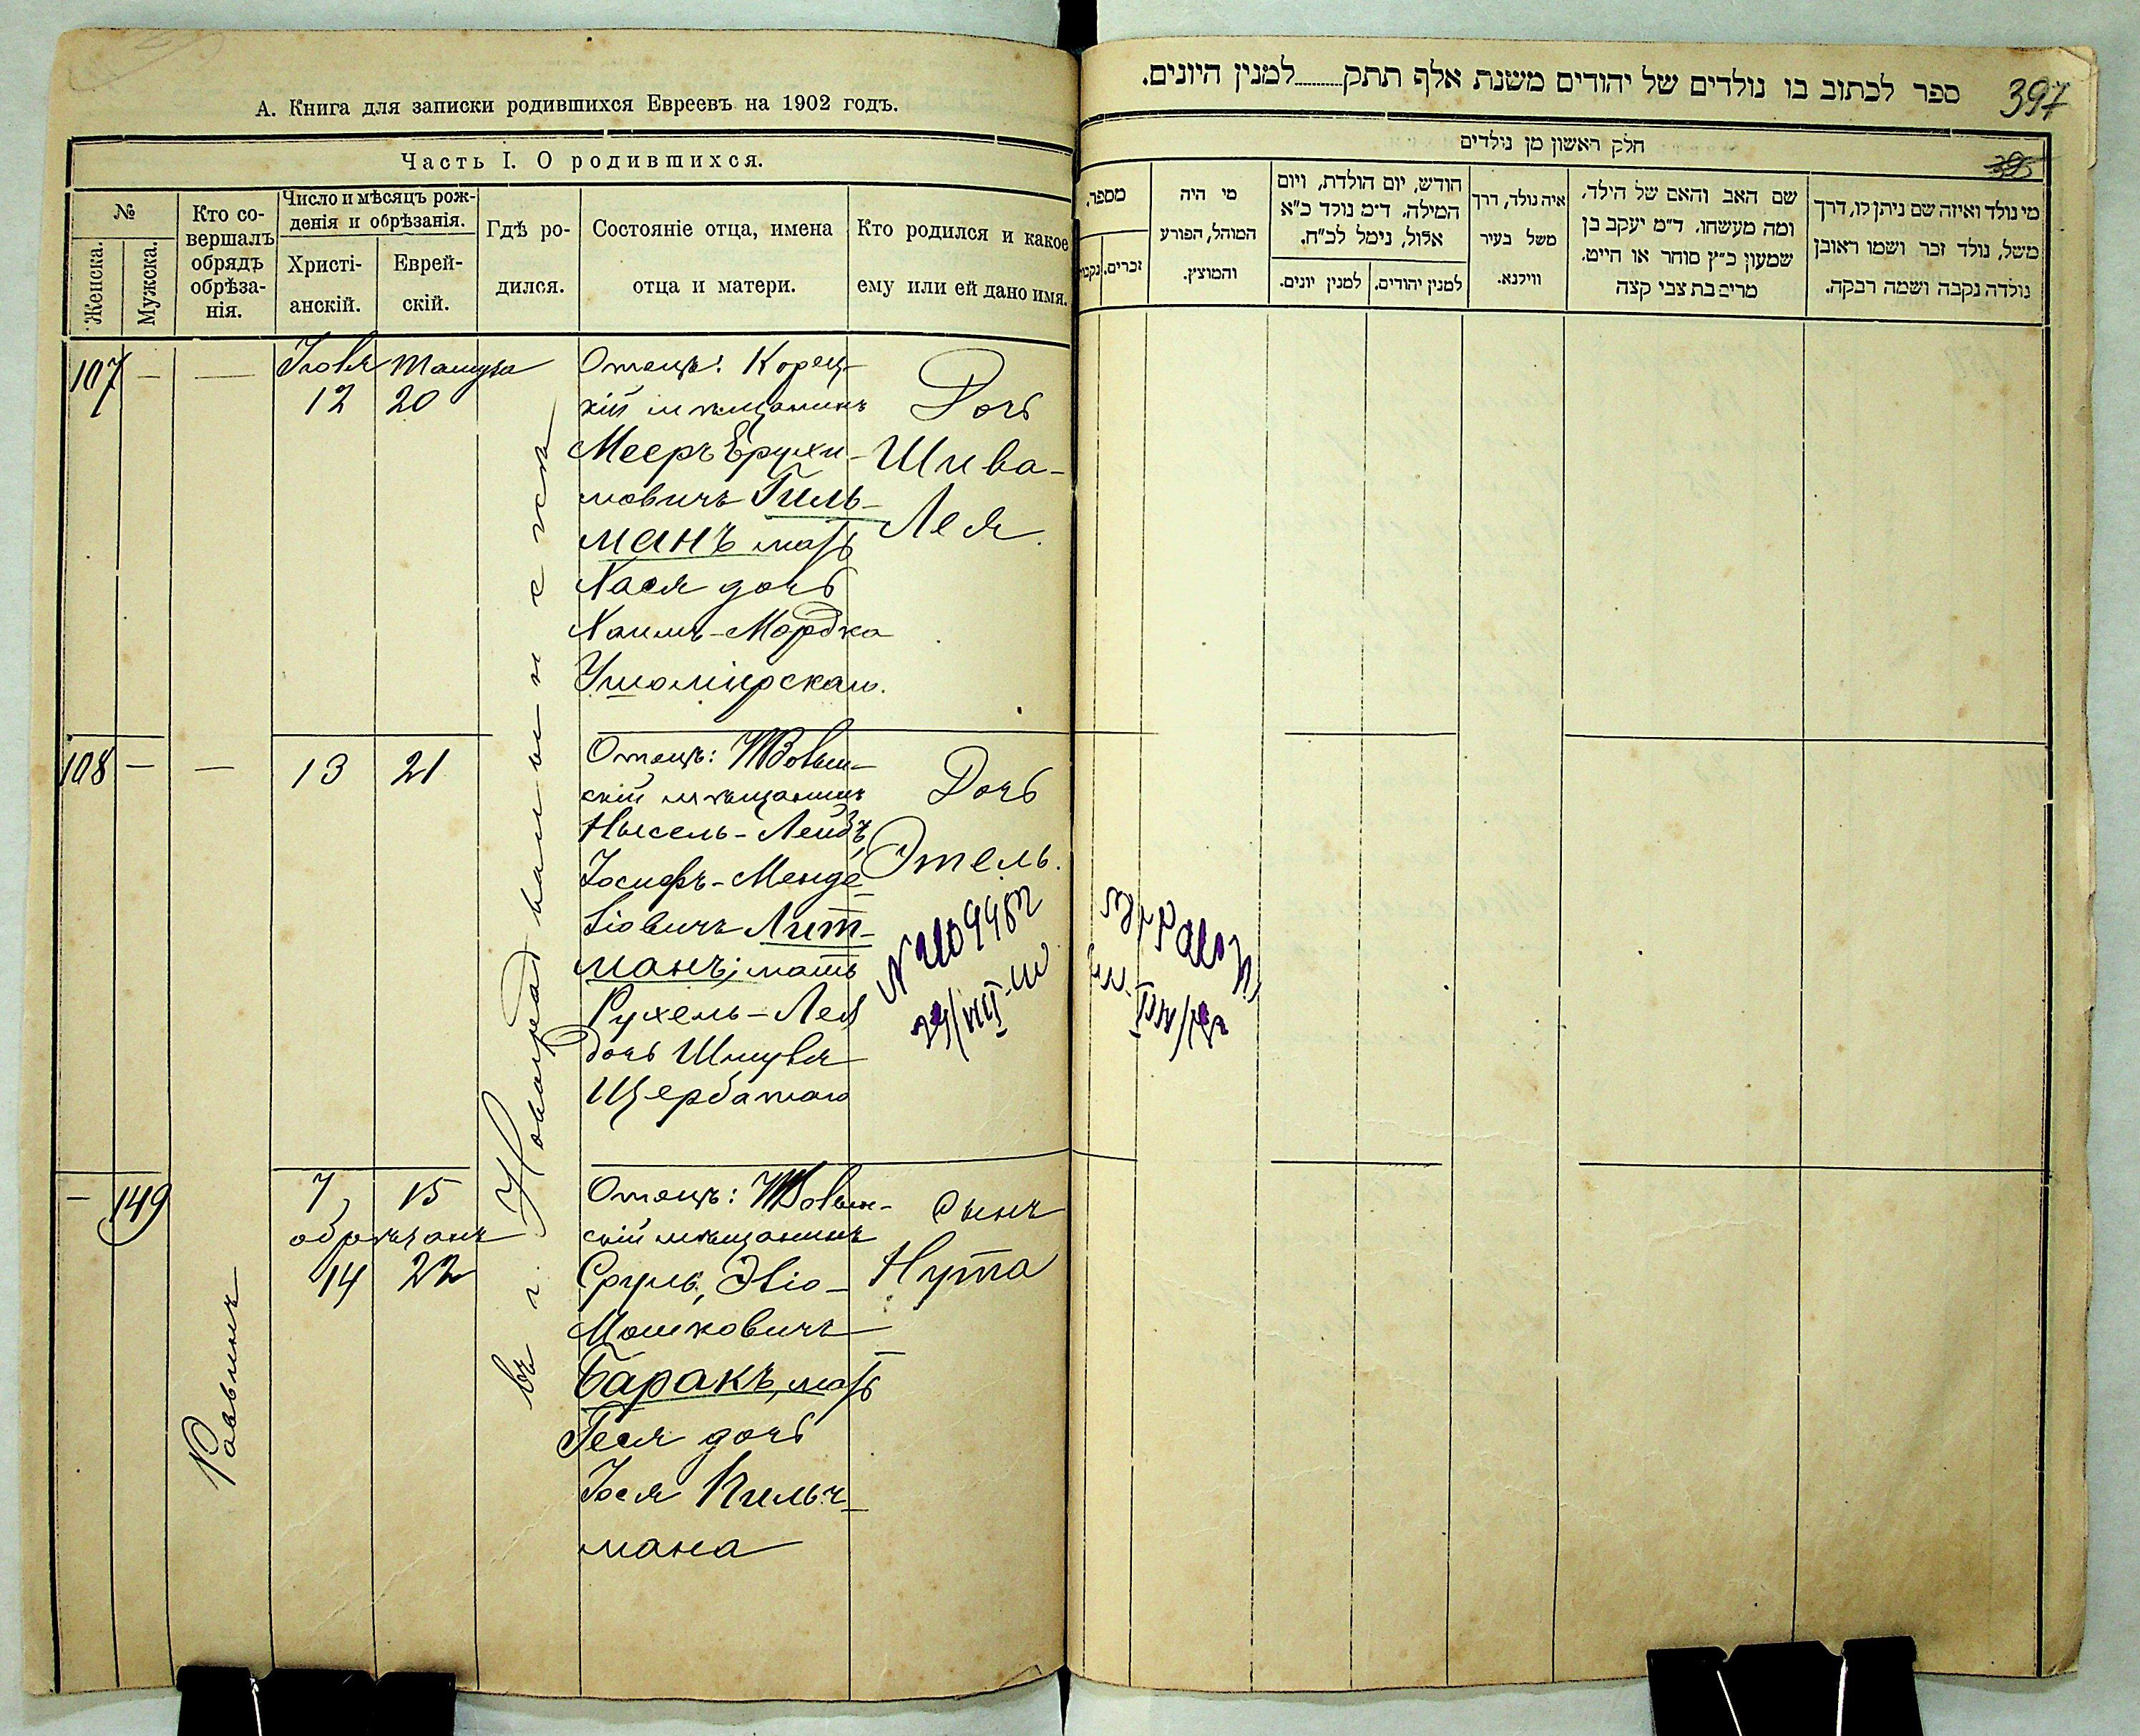 А. Книга для записки родившихся Евреевъ на 1902 годъ.
Часть I. О родившихся.
№
Женска.
Мужска.
Кто со-
вершалъ
обрядъ
обрѣза-
нія.
Число и мѣсяцъ рож-
денія и обрѣзанія.
Христі-
анскій.
Еврей-
скій.
Гдѣ ро-
дился.
Состояніе отца, имена
отца и матери.
Кто родился и какое
ему или ей дано имя.
107 — —
Іюля Тамуза
12 20
Отецъ: Корец-
кій мѣщанинъ
Мееръ Ерухи-
мовичъ Гиль-
манъ мать
Хася дочь
Хаимъ-Мордка
Ушомірскаго.
Дочь
Шива-
Лея.
108 — —
13 21
Отецъ:
скій мѣщанинъ
Нысель-Лейбъ
Іосифъ-Менде
ліовичъ Лит-
манъ; мать
Рухель-Лея
дочь Шмуля
Щербатаго
Дочь
Этель.
— 149
7 15
обрѣзанъ
14 22
Раввинъ
въ г. Новоградволынскѣ
Отецъ:
скій мѣщанинъ
Сруль, Эліо-
Мошковичъ
Баракъ, мать
Геся дочь
Іося Кильч-
мана
Сынъ
Нута
397
395
ספר לכתוב בו נולדים של יהודים משנת אלף תתק למנין היונים.
חלק ראשון מן נולדים
מי נולד ואיזה שם ניתן לו, דרך
משל, נולד זכר ושמו ראובן
נולדה נקבה ושמה רבקה.
שם האב והאם של הילד,
ומה מעשהו, ד״מ יעקב בן
שמעון כ״ץ סוחר או חייט.
מרים בת צבי קצה
איה נולד, דרך
משל בעיר
ווילנא.
חודש, יום הולדת, ויום
המילה, ד״מ נולד כ״א
אלול, נימל לכ״ח.
למנין יהודים.
למנין יונים.
מי היה
המוהל, הפורע
והמוצץ.
מספר,
זכרים.